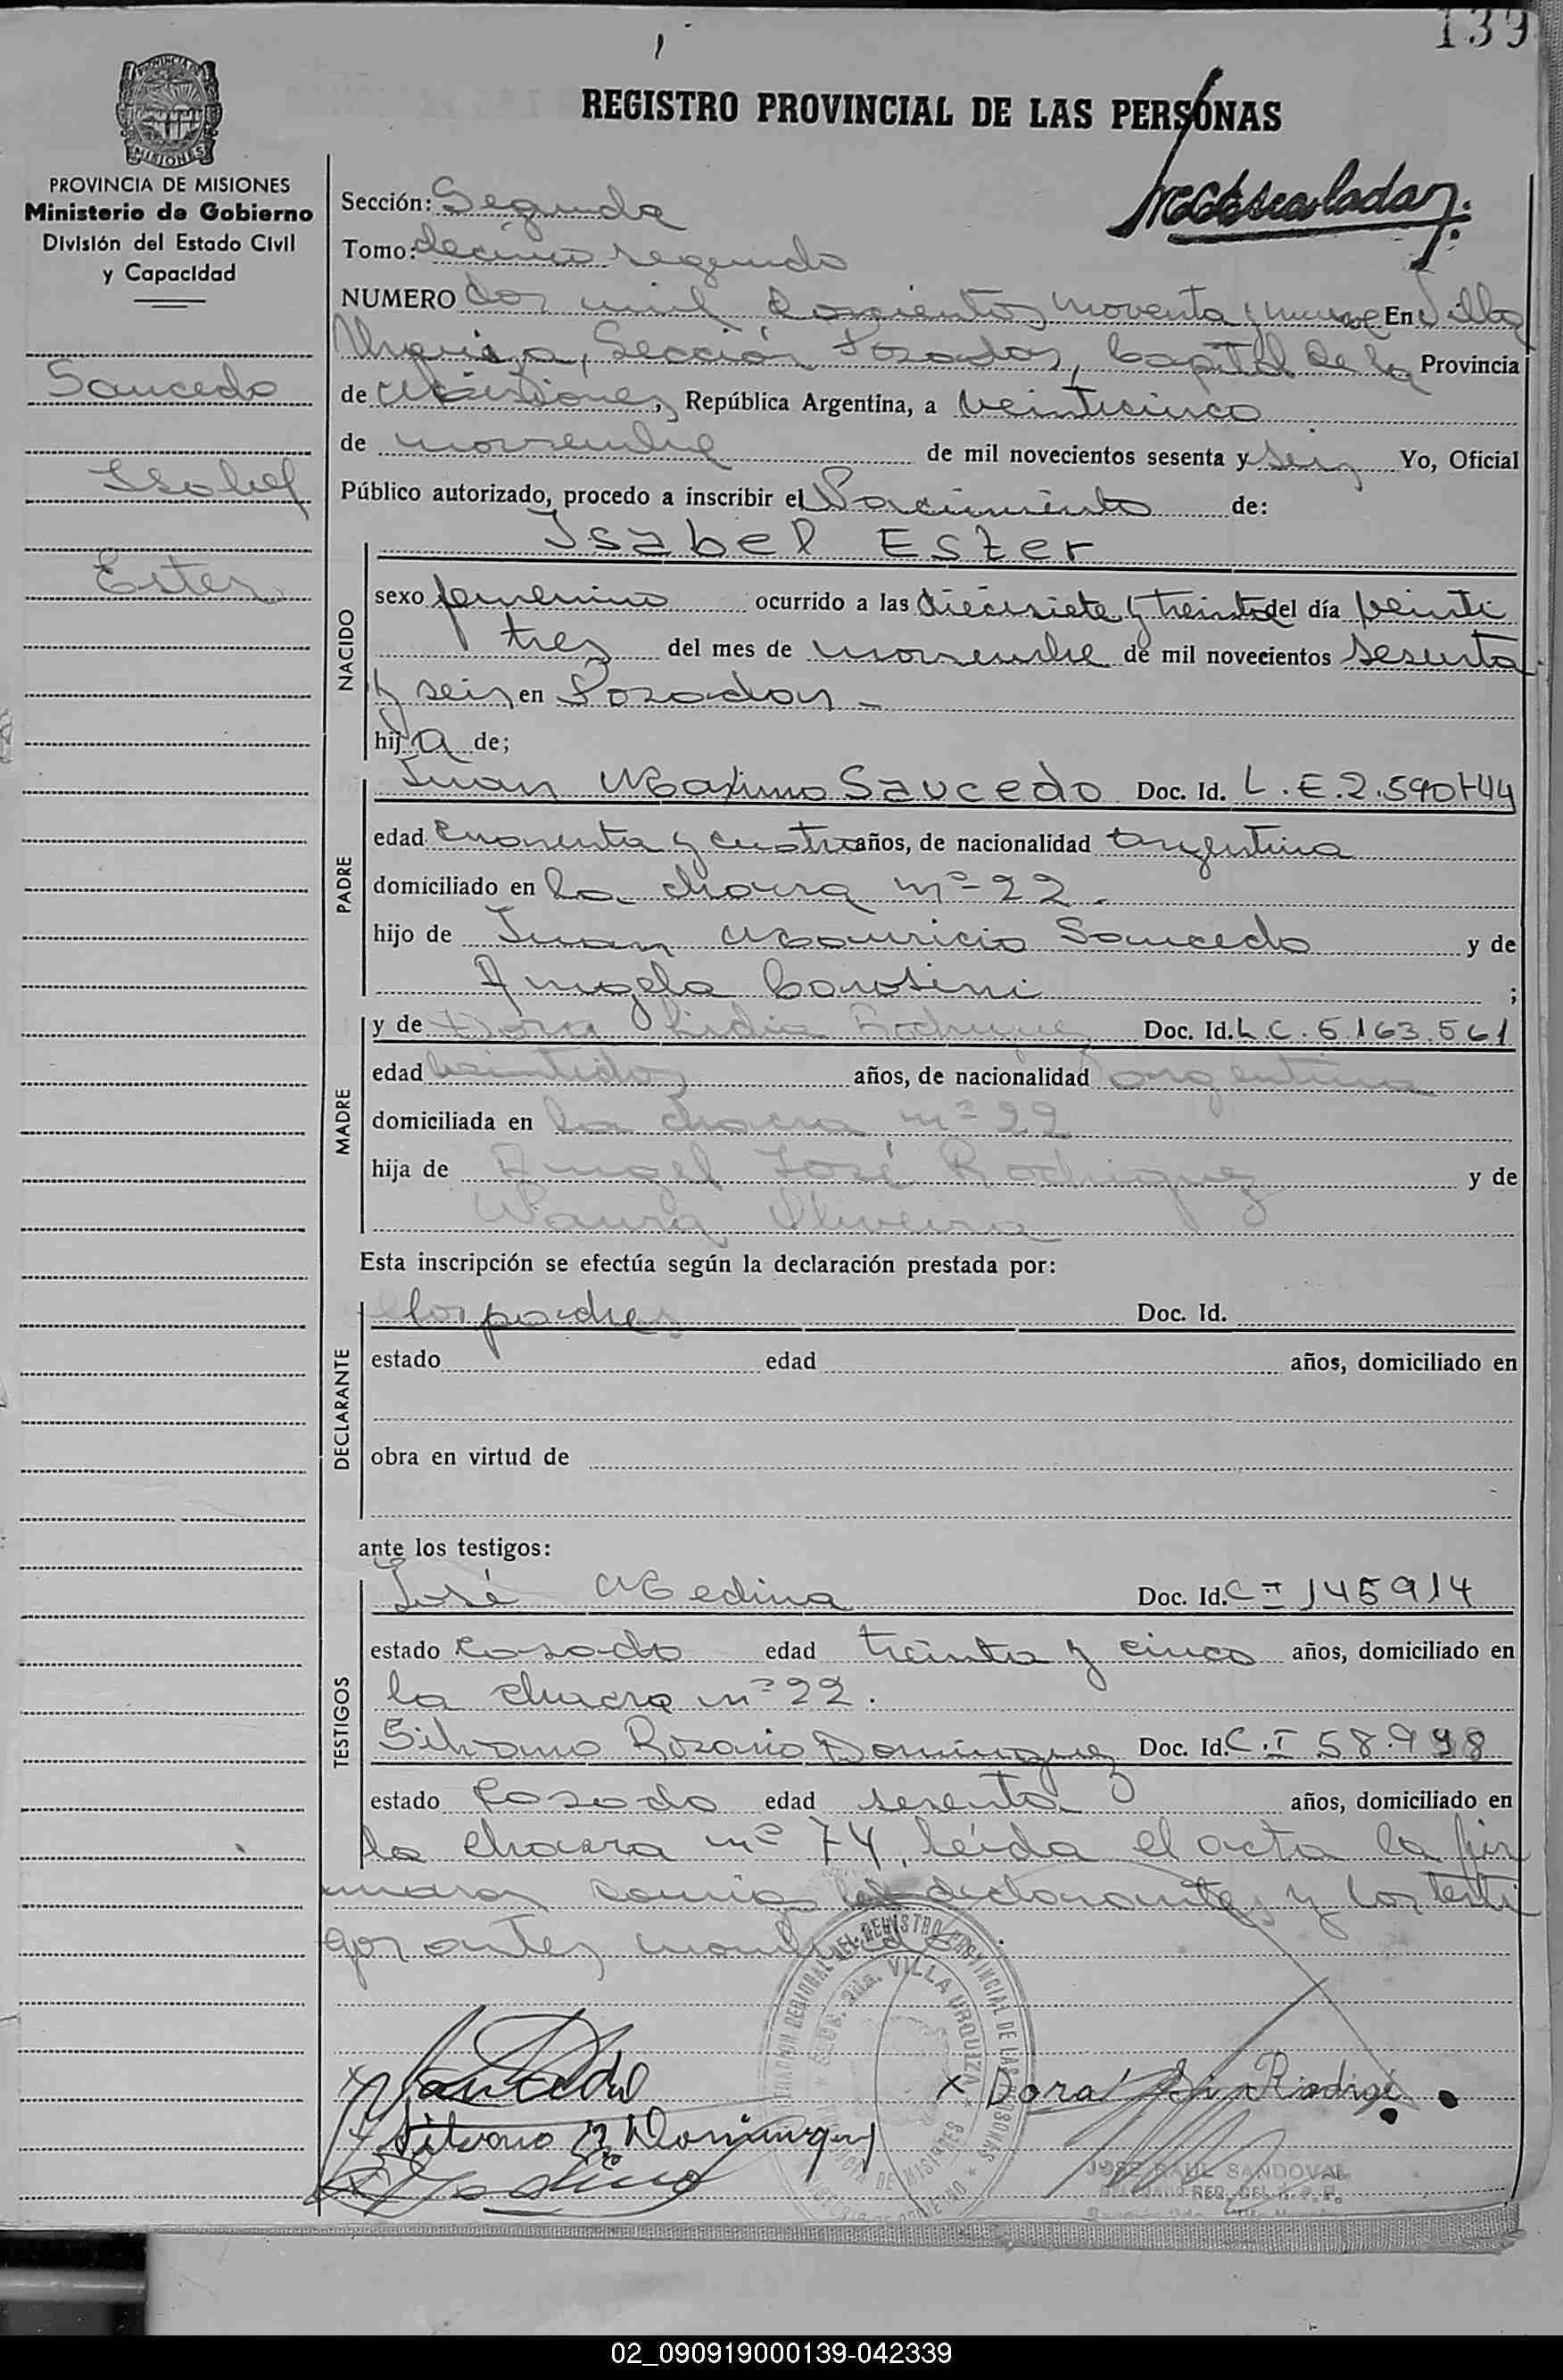 139
REGISTRO PROVINCIAL DE LAS PERSONAS
PROVINCIA DE MISIONES
Ministerio de Gobierno
División del Estado Civil
y Capacidad
Saucedo
Isabel
Ester
Sección: Segunda
Tomo: decimo segundo
NUMERO dos mil doscientos noventa y nueve En Villa
Urquiza, Sección Posadas, Capital de la Provincia
de Misiones, República Argentina, a veinticinco
de noviembre de mil novecientos sesenta y seis Yo, Oficial
Público autorizado, procedo a inscribir el Nacimiento de:
Isabel Ester
NACIDO
sexo femenino ocurrido a las diecisiete y treinta del día veinti
tres del mes de noviembre de mil novecientos sesenta
y seis en Posadas
hija de;
PADRE
Juan Maximo Saucedo Doc. Id. L.E. 2.590744
edad cuarenta y cuatro años, de nacionalidad argentina
domiciliado en la chacra nº 22.
hijo de Juan Mauricio Saucedo y de
Angela ;
MADRE
y de Dora Lidia Rodriguez Doc. Id. L C. 5.163.561
edad veintidos años, de nacionalidad argentina
domiciliada en la chacra nº 22
hija de Angel José Rodriguez y de
Oliveira
Esta inscripción se efectúa según la declaración prestada por:
DECLARANTE
los padres Doc. Id.
estado edad años, domiciliado en
obra en virtud de
ante los testigos:
TESTIGOS
José Medina Doc. Id. C I 145914
estado casado edad treinta y cinco años, domiciliado en
la chacra nº 22.
Silvano Rosario Dominguez Doc. Id. C.I 58.998
estado casado edad sesenta años, domiciliado en
la chacra nº 74, leída el acta la fir
man declarantes y los testi
gos antes
DEL REGISTRO PROVINCIAL DE LAS PERSONAS
VILLA URQUIZA
DE MISIONES
Saucedo
x Dora Rodrig
Silvano R. Dominguez
Medina
JOSE RAUL SANDOVAL
02_090919000139-042339